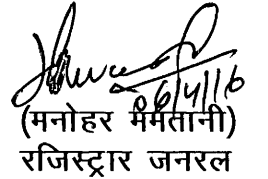 06/4/16
(मनोहर ममतानी)
रजिस्ट्रार जनरल